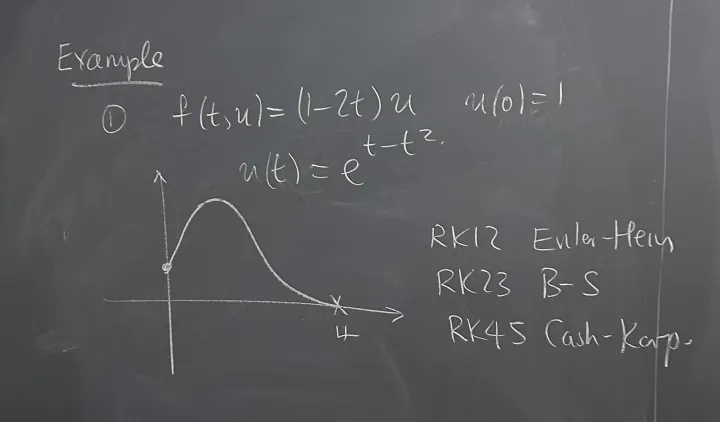 Example
① f(t,u)=(1-2t)u u(0)=1
u(t)=e^{t-t^2}.
RK12 Euler-Heun
RK23 B-S
RK45 Cash-Karp.
4